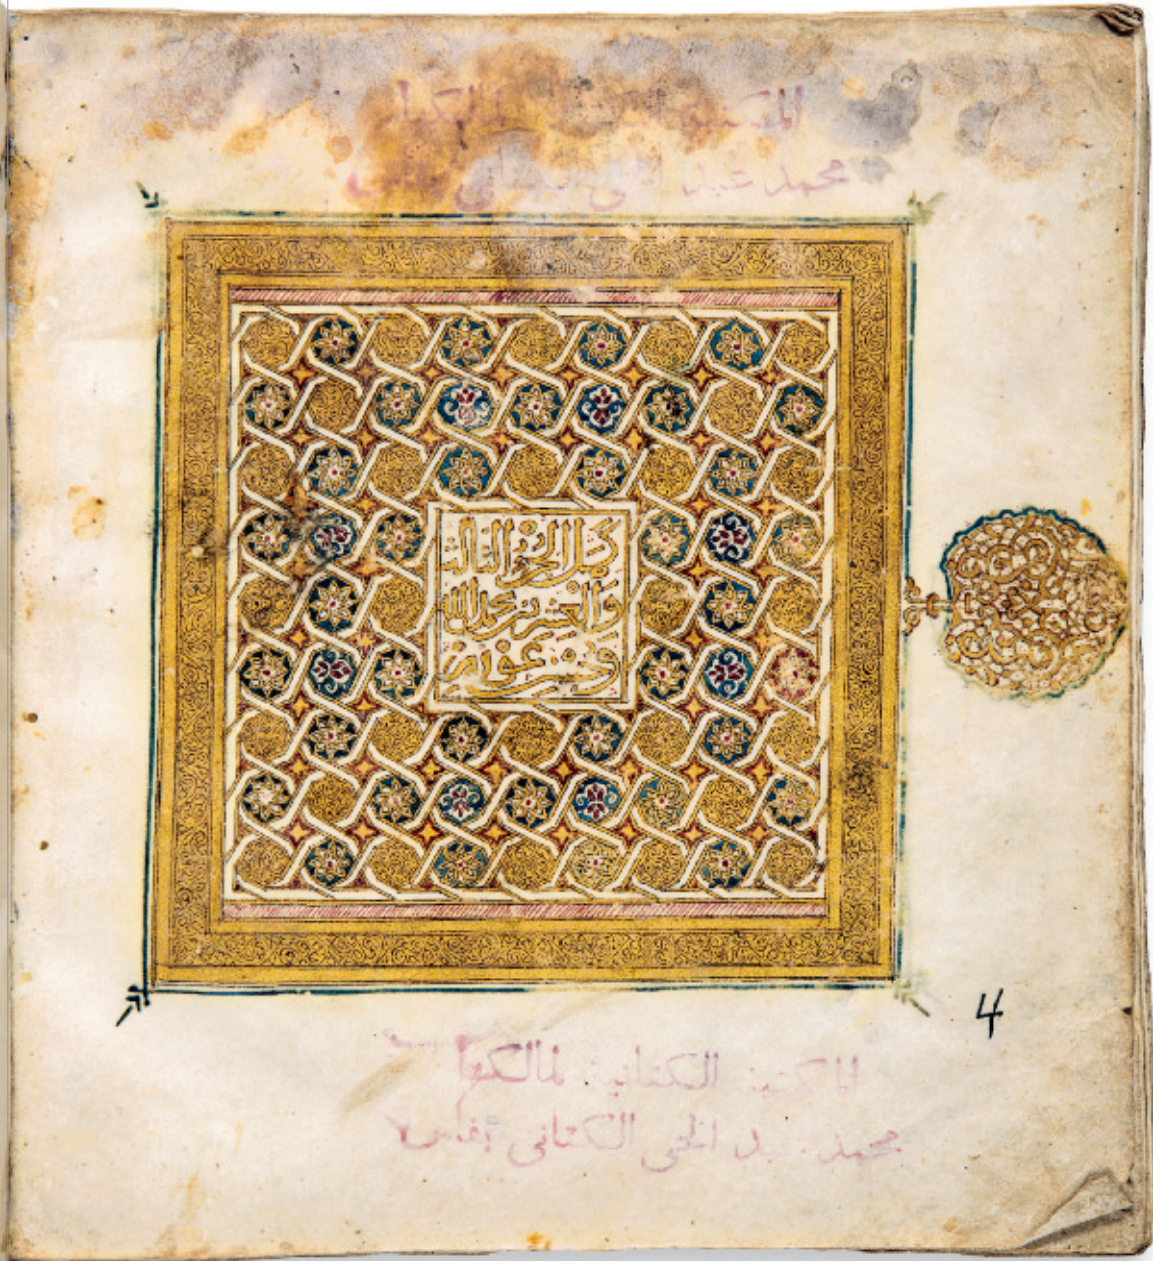 المكتبة الكتانية لمالكها
محمد عبد الحي الكتاني بفاس
كمل الجزء الثالث
والعشرين بحمد الله
وحسن عونه
4
المكتبة الكتانية لمالكها
محمد عبد الحي الكتاني بفاس